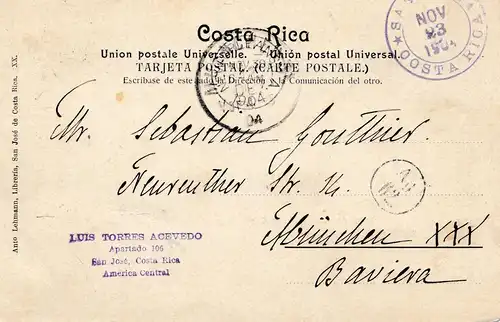 Costa Rica
Union postale Universelle. Unión postal Universal.
TARJETA POSTAL (CARTE POSTALE.)
Escríbase de este lado la Dirección la Comunicación del otro.
NOV
23
COSTA RICA
04
Mr. Sebastian Gouthier.
Neureuther Str.
München XXX
Baviera
LUIS TORRES ACEVEDO
Apartado 106
San José, Costa Rica
America Central
Anto Lehmann, Librería, San José de Costa Rica. XX.